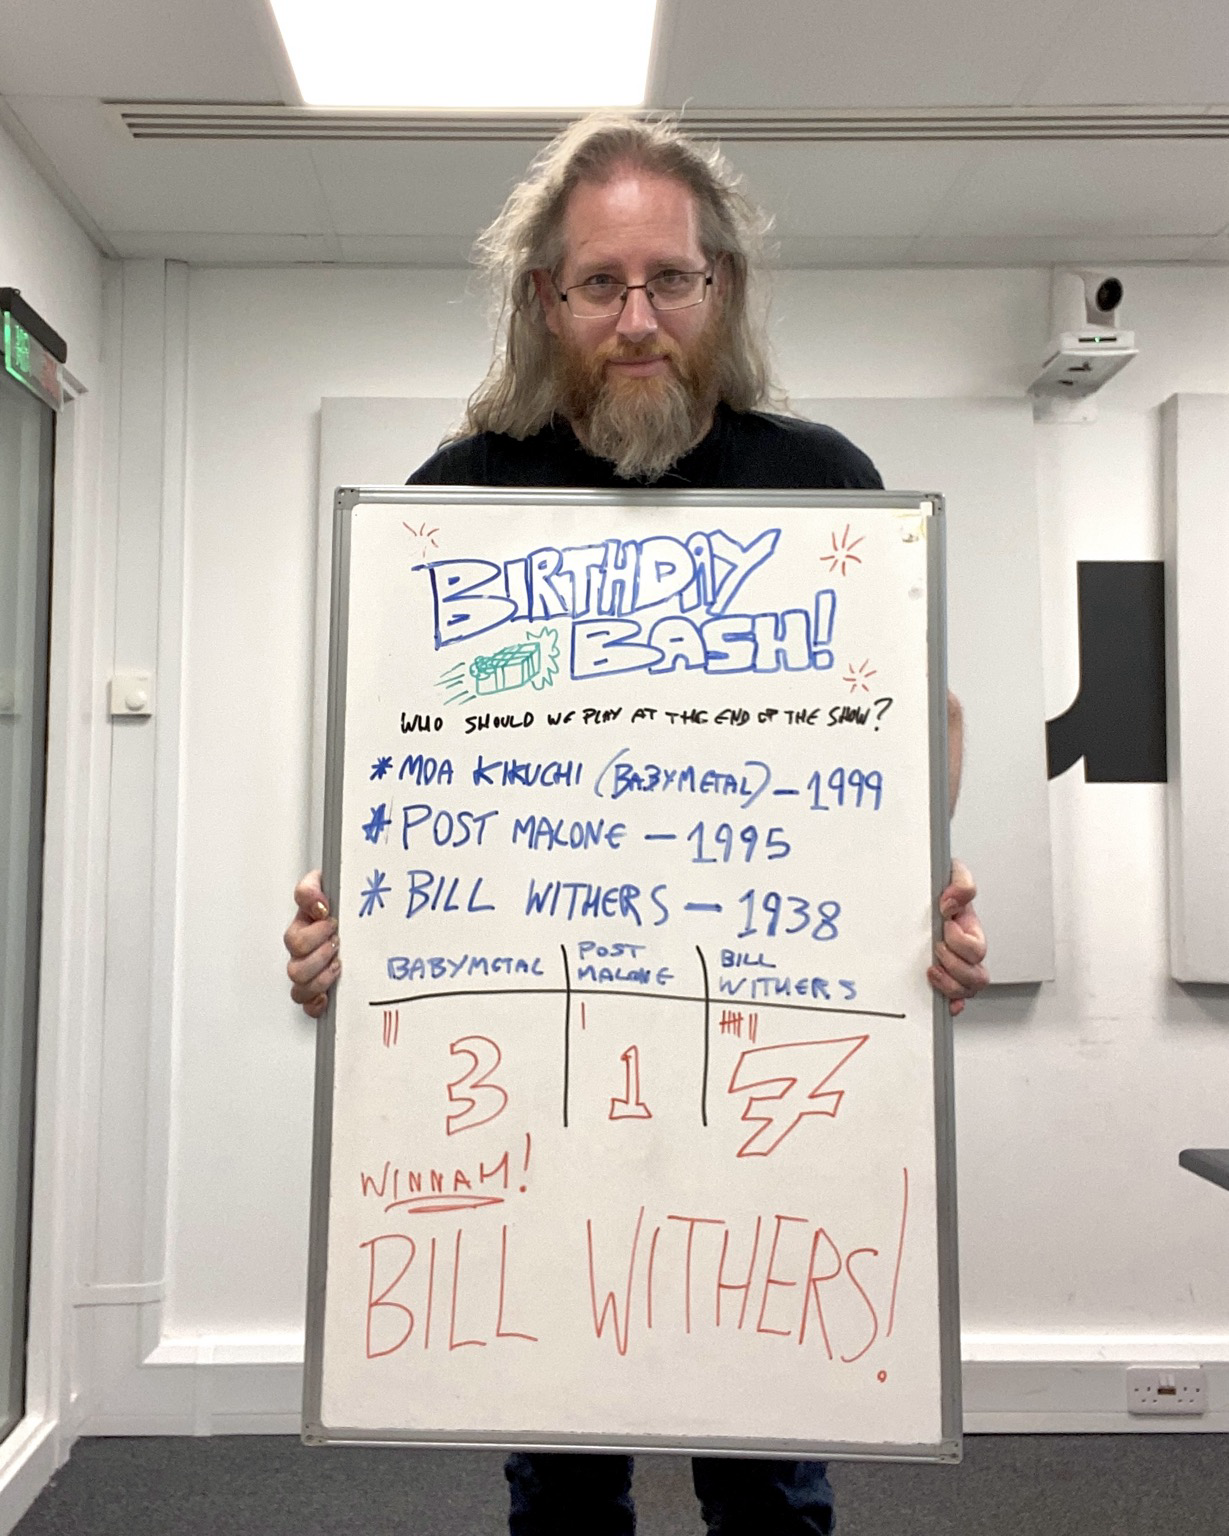 BIRTHDAY
BASH!
WHO SHOULD WE PLAY AT THE END OF THE SHOW?
* MOA KIKUCHI (BABYMETAL) - 1999
* POST MALONE - 1995
* BILL WITHERS - 1938
BABYMETAL
POST
MALONE
BILL
WITHERS
3
1
7
WINNAH!
BILL WITHERS!